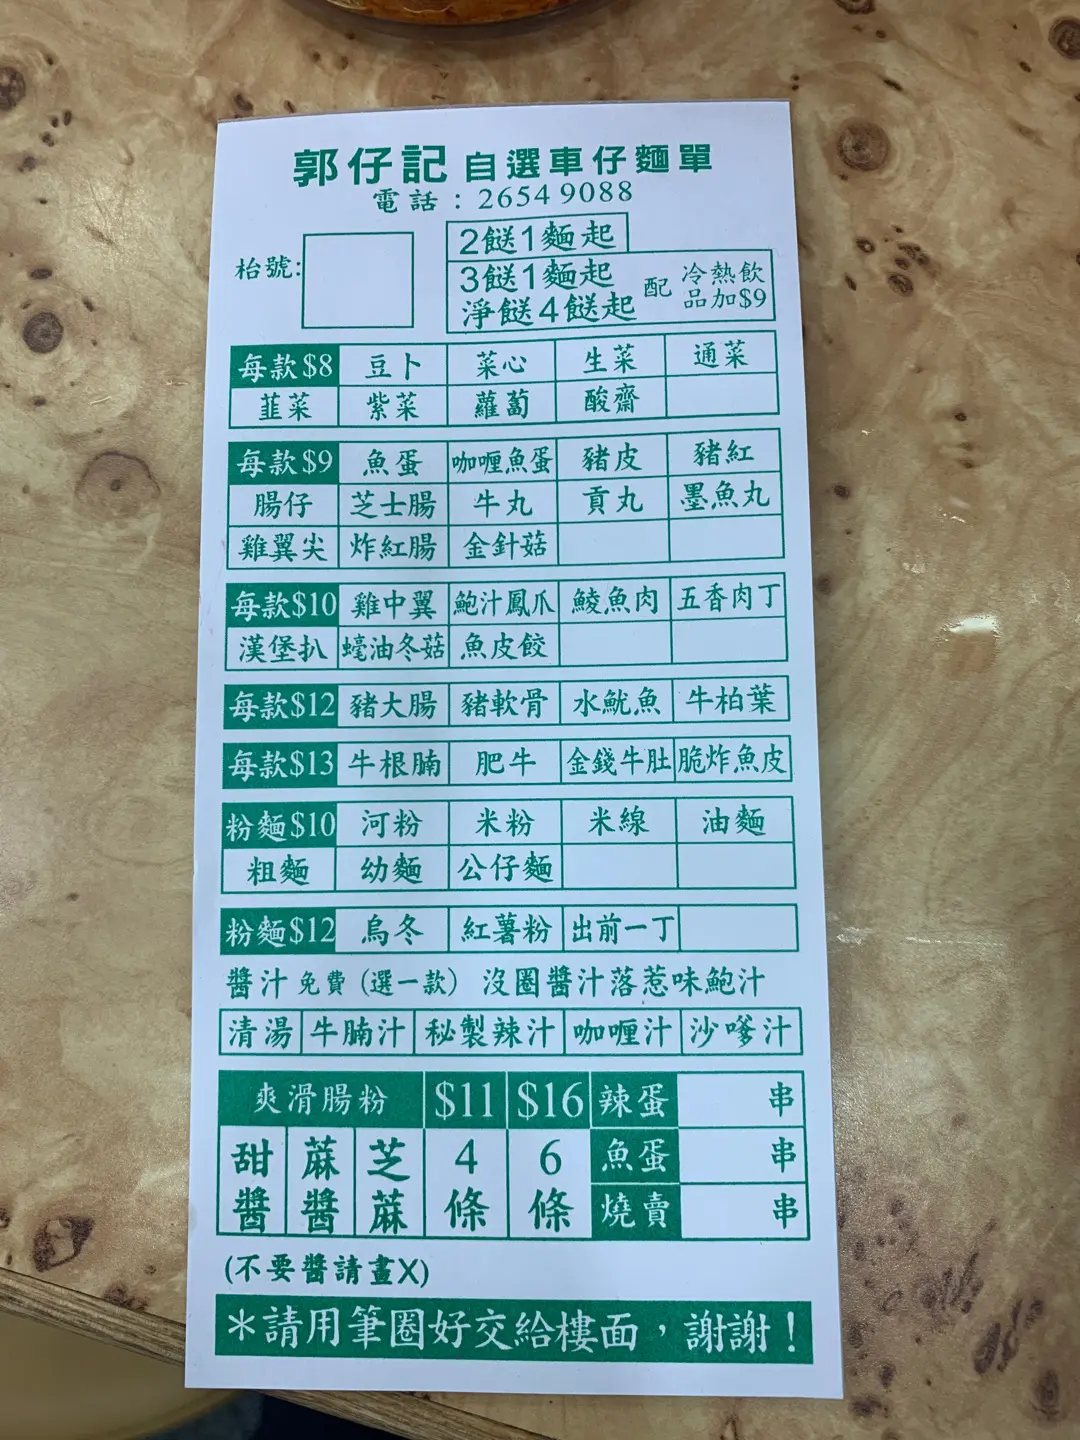 郭仔記 自選車仔麵單
電話：2654 9088
枱號:
2餸1麵起
3餸1麵起
淨餸4餸起
配 冷熱飲
品加$9
每款$8 豆卜 菜心 生菜 通菜
韮菜 紫菜 蘿蔔 酸齋
每款$9 魚蛋 咖喱魚蛋 豬皮 豬紅
腸仔 芝士腸 牛丸 貢丸 墨魚丸
雞翼尖 炸紅腸 金針菇
每款$10 雞中翼 鮑汁鳳爪 鯪魚肉 五香肉丁
漢堡扒 蠔油冬菇 魚皮餃
每款$12 豬大腸 豬軟骨 水魷魚 牛柏葉
每款$13 牛根腩 肥牛 金錢牛肚 脆炸魚皮
粉麵$10 河粉 米粉 米線 油麵
粗麵 幼麵 公仔麵
粉麵$12 烏冬 紅薯粉 出前一丁
醬汁免費（選一款） 沒圈醬汁落惹味鮑汁
清湯 牛腩汁 秘製辣汁 咖喱汁 沙嗲汁
爽滑腸粉 $11 $16 辣蛋 串
甜醬 蔴醬 芝蔴 4條 6條 魚蛋 串
燒賣 串
(不要醬請畫X)
＊請用筆圈好交給樓面，謝謝！